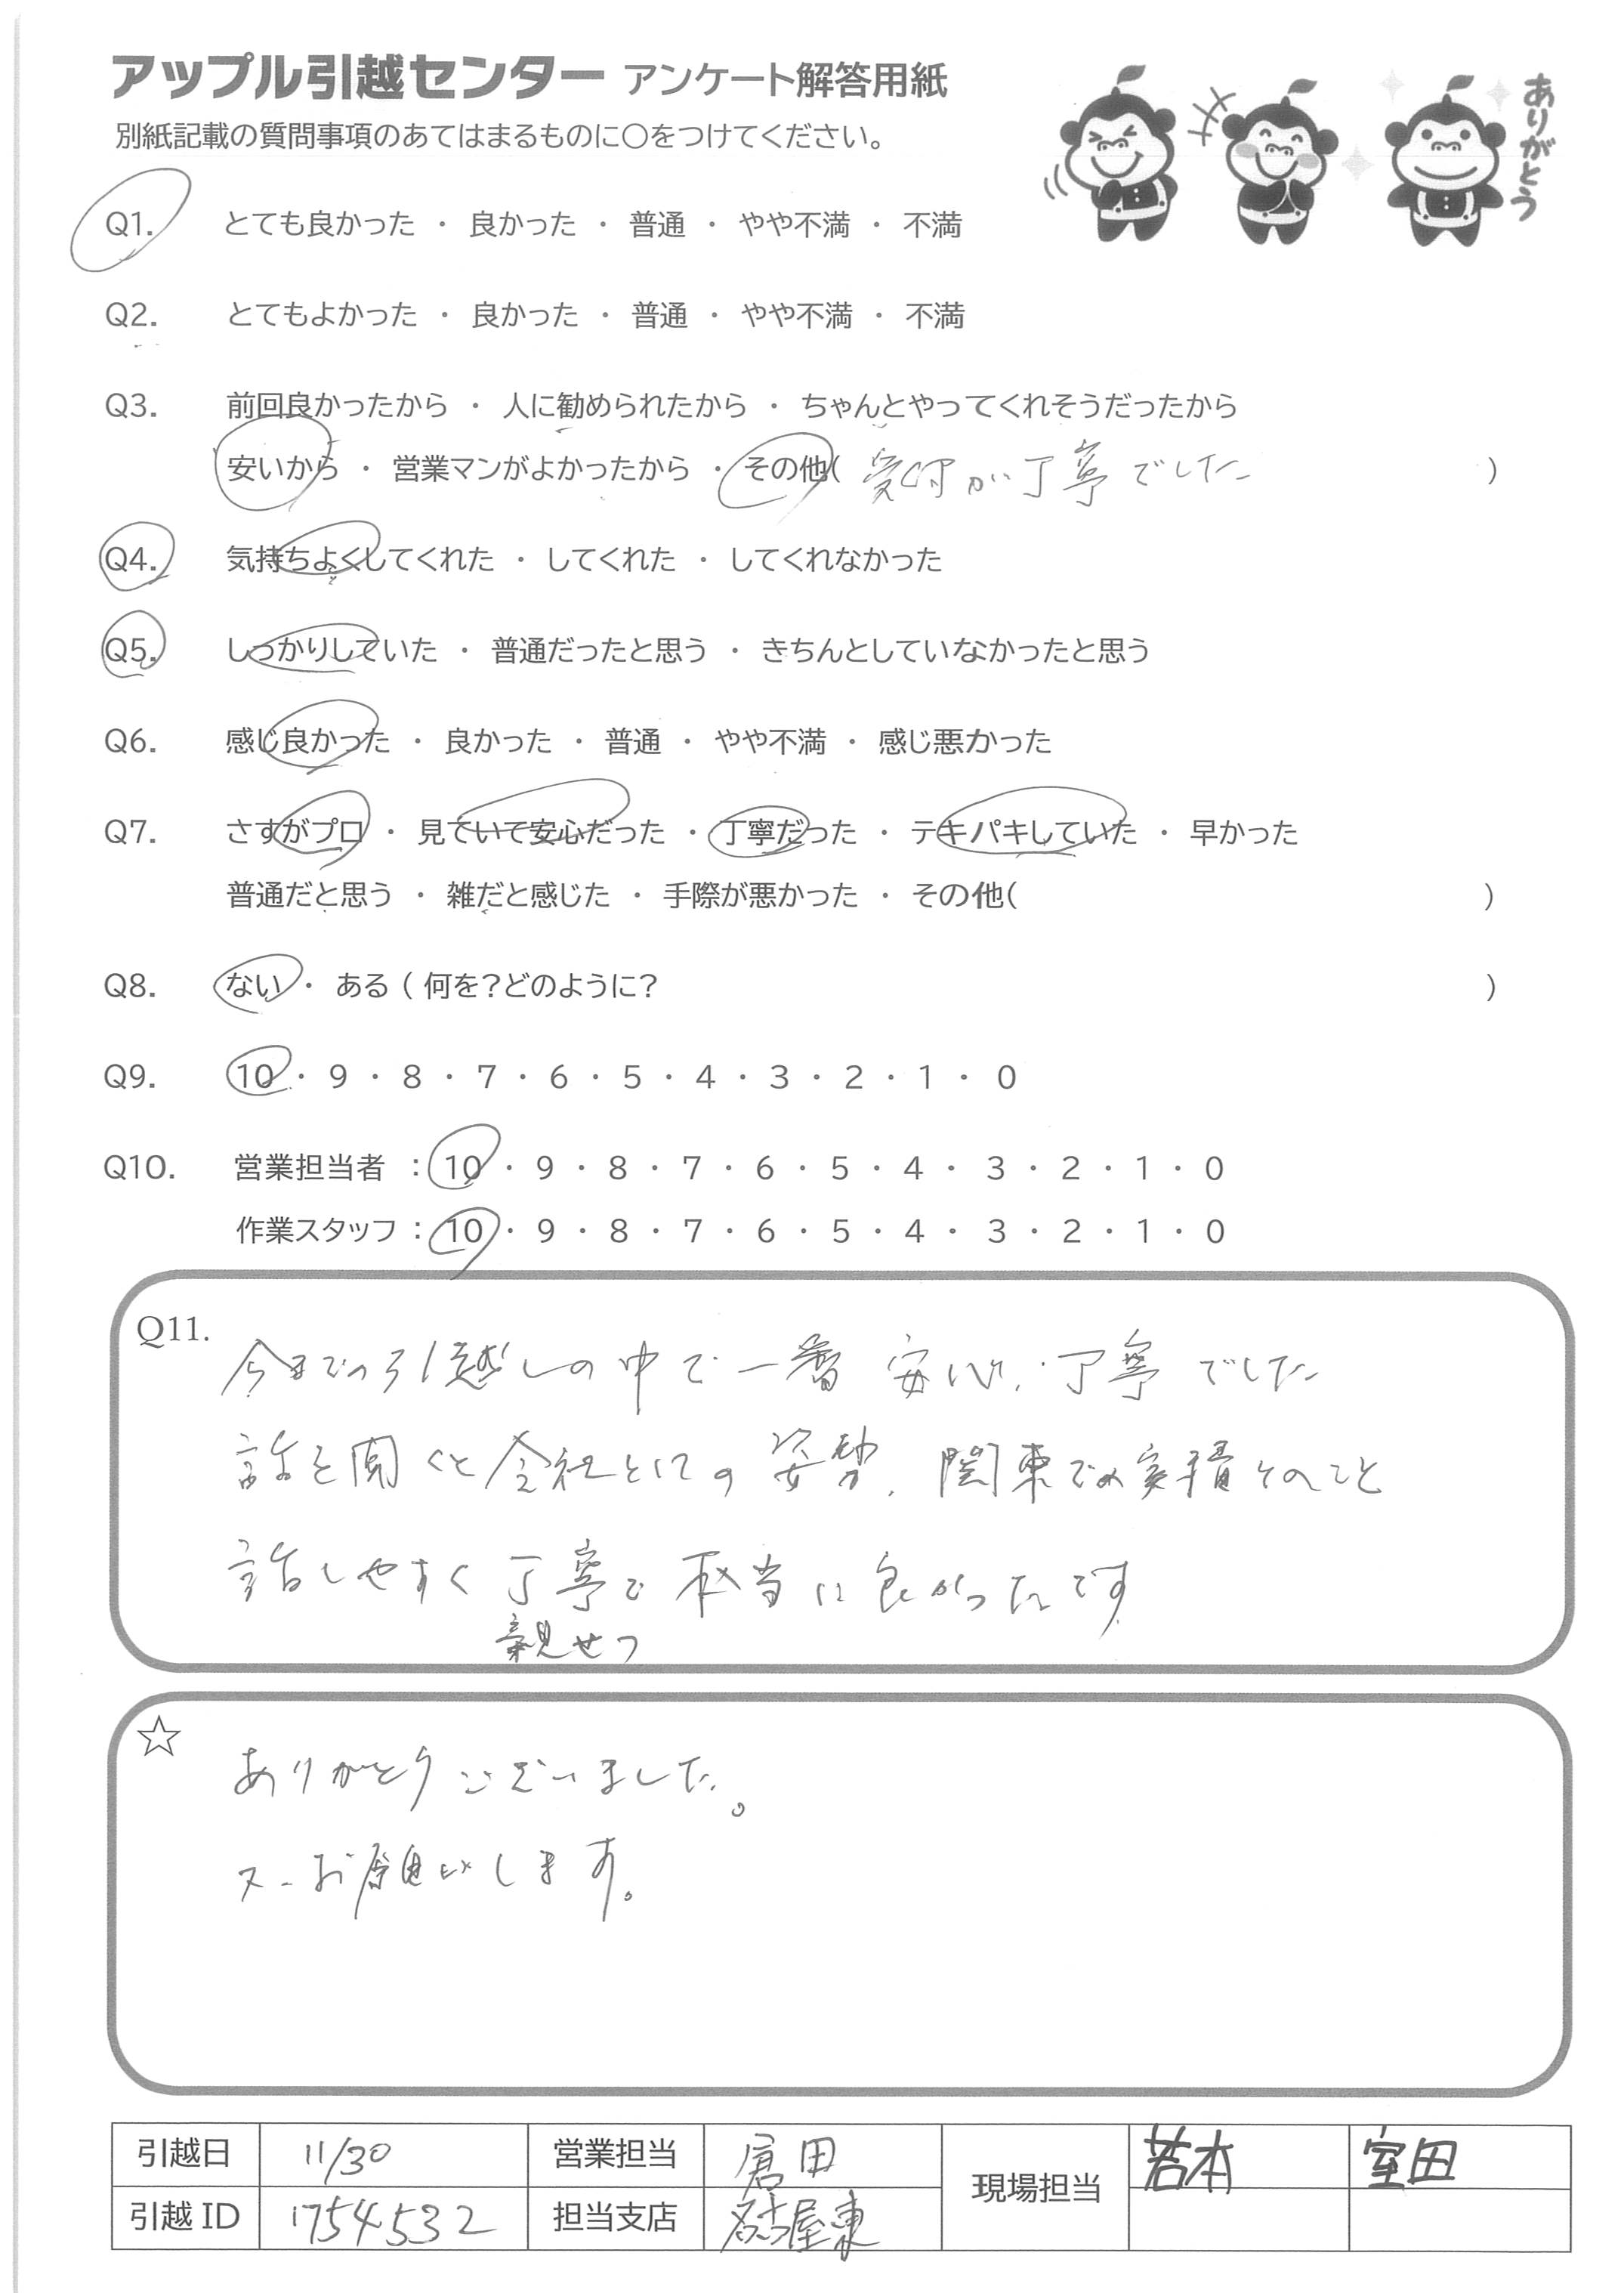 アップル引越センター アンケート解答用紙
別紙記載の質問事項のあてはまるものに〇をつけてください。
ありがとう
Q1. とても良かった ・ 良かった ・ 普通 ・ やや不満 ・ 不満
Q2. とてもよかった ・ 良かった ・ 普通 ・ やや不満 ・ 不満
Q3. 前回良かったから ・ 人に勧められたから ・ ちゃんとやってくれそうだったから
安いから ・ 営業マンがよかったから ・ その他( 受付が丁寧でした )
Q4. 気持ちよくしてくれた ・ してくれた ・ してくれなかった
Q5. しっかりしていた ・ 普通だったと思う ・ きちんとしていなかったと思う
Q6. 感じ良かった ・ 良かった ・ 普通 ・ やや不満 ・ 感じ悪かった
Q7. さすがプロ ・ 見ていて安心だった ・ 丁寧だった ・ テキパキしていた ・ 早かった
普通だと思う ・ 雑だと感じた ・ 手際が悪かった ・ その他( )
Q8. ない ・ ある ( 何を？どのように？ )
Q9. 10 ・ 9 ・ 8 ・ 7 ・ 6 ・ 5 ・ 4 ・ 3 ・ 2 ・ 1 ・ 0
Q10. 営業担当者 ： 10 ・ 9 ・ 8 ・ 7 ・ 6 ・ 5 ・ 4 ・ 3 ・ 2 ・ 1 ・ 0
作業スタッフ ： 10 ・ 9 ・ 8 ・ 7 ・ 6 ・ 5 ・ 4 ・ 3 ・ 2 ・ 1 ・ 0
Q11.
今までの引越しの中で一番 安心、丁寧でした
話を聞くと会社としての姿勢、関東での実績そのこと
話しやすく 丁寧で 本当に良かったです
親せつ
☆
ありがとうございました。
又、お願いします。
引越日 11/30 営業担当 倉田 現場担当 若本 室田
引越ID 1754532 担当支店 名古屋東